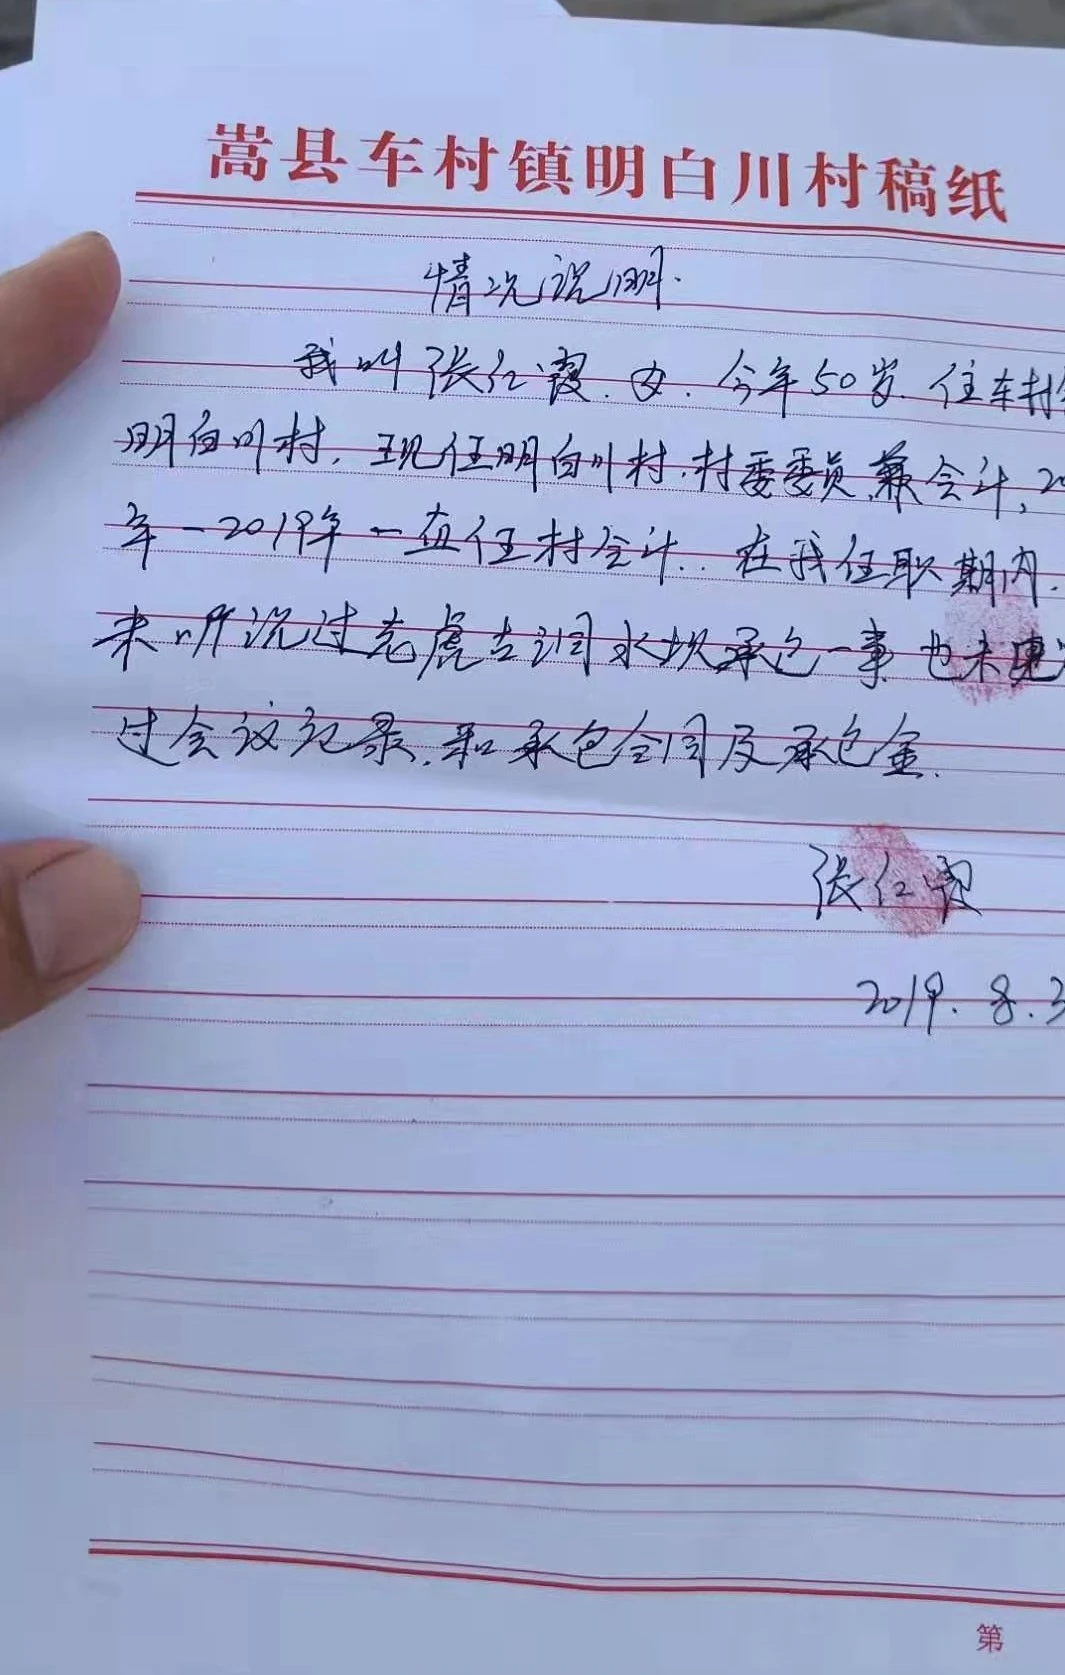 嵩县车村镇明白川村稿纸
情况说明.
我叫张仁霞.女.今年50岁.住车村
明白川村.现任明白川村.村委委员.兼会计,20
年一2019年一直任村会计..在我任职期内.
未听说过老虎古洞水坝承包一事也未见
过会议记录.和承包合同及承包金.
张仁霞
2019.8.3
第